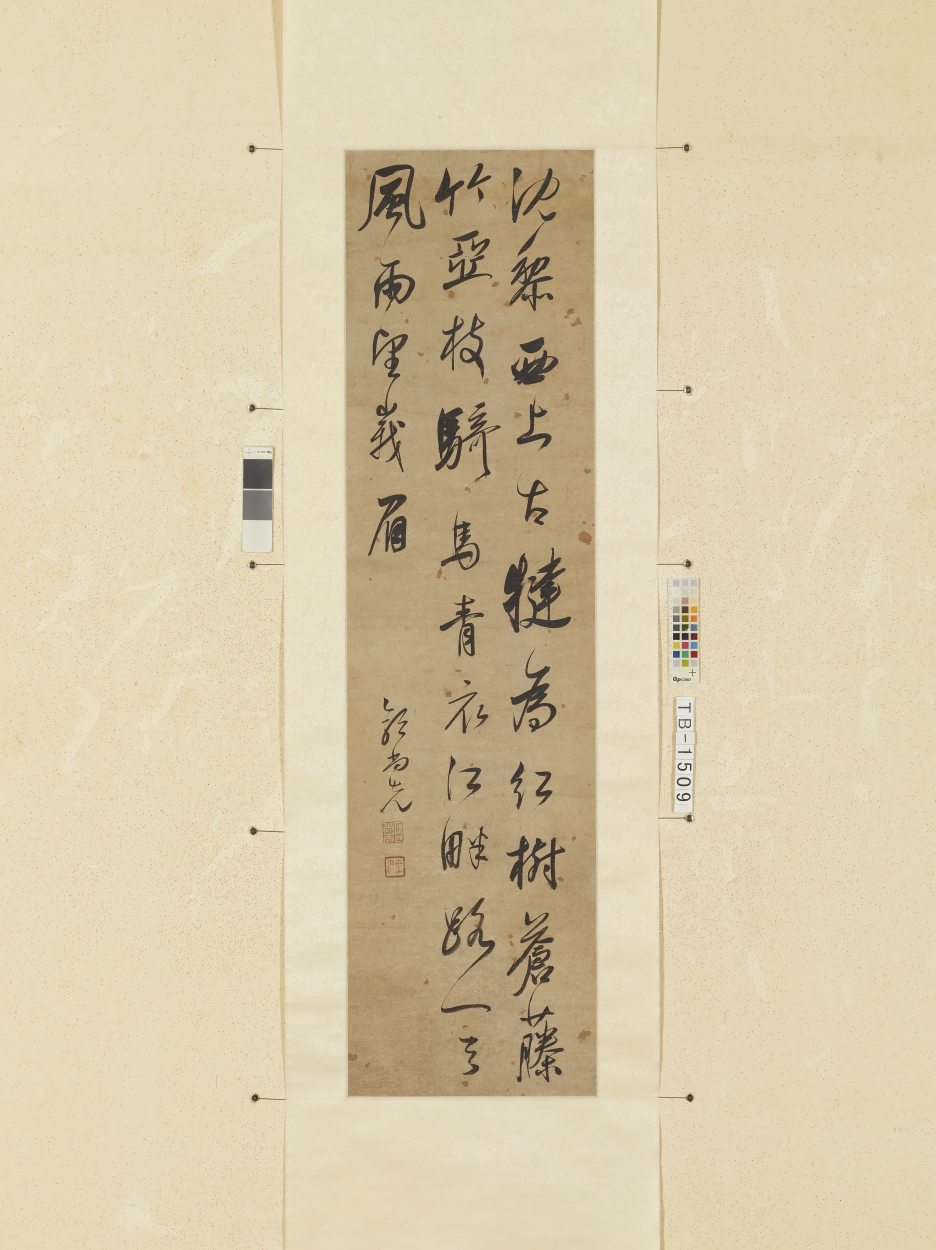 沈黎西上古犍為紅樹蒼藤
竹亞枝騎馬青衣江畔路一天
風雨望峩眉
郭尚先
TB-1509
QPCARD